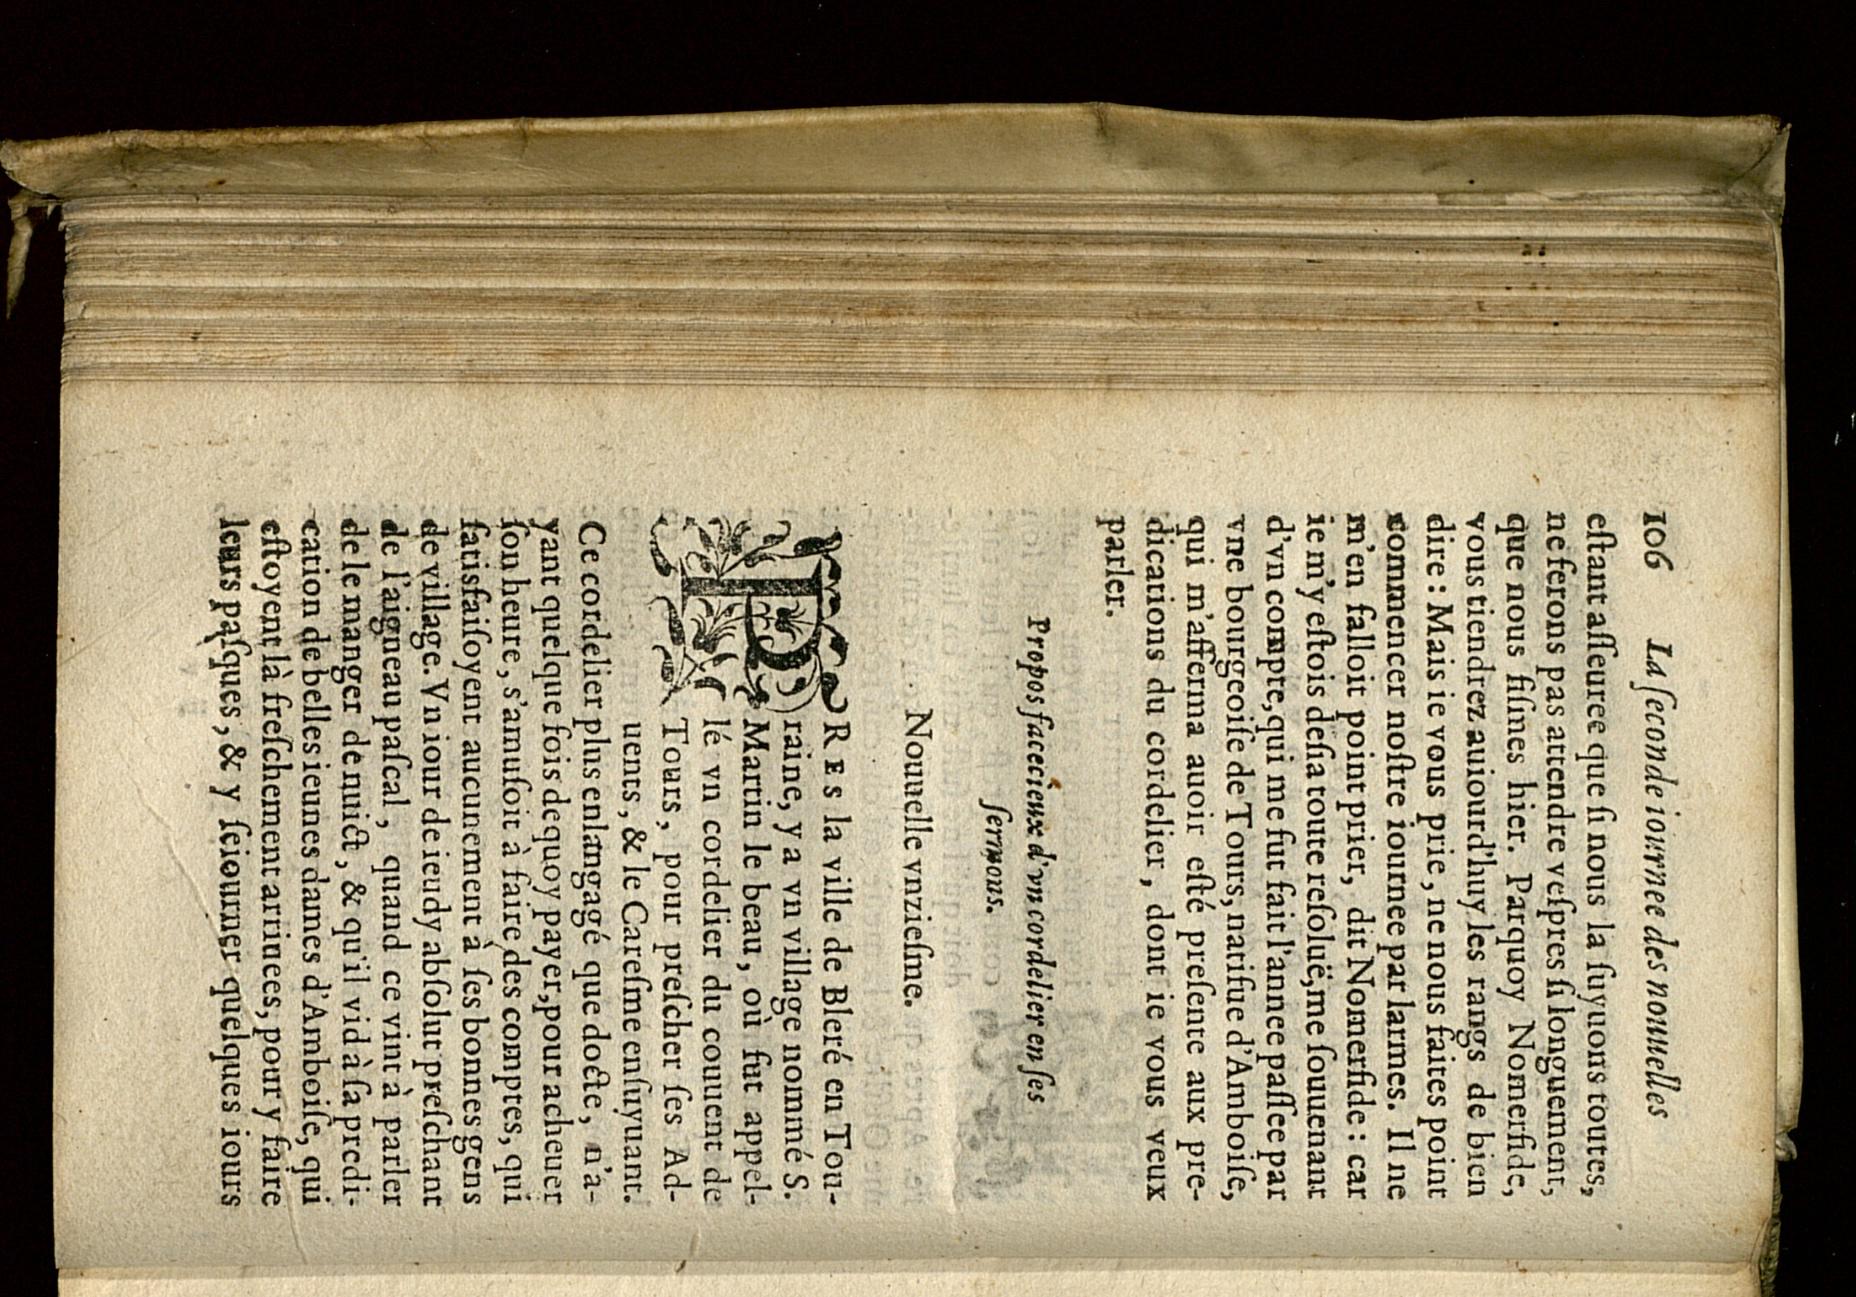 106 La ſeconde iournee des nouuelles
eſtant aſſeuree que ſi nous la ſuyuons toutes,
ne ferons pas attendre veſpres ſi longuement,
que nous fiſmes hier. Parquoy Nomerfide,
vous tiendrez auiourd'huy les rangs de bien
dire : Mais ie vous prie, ne nous faites point
commencer noſtre iournee par larmes. Il ne
m'en falloit point prier, dit Nomerfide : car
ie m'y eſtois deſia toute reſoluë, me ſouuenant
d'vn compte, qui me fut fait l'annee paſſee par
vne bourgeoiſe de Tours, natifue d'Amboiſe,
qui m'afferma auoir eſté preſente aux pre-
dications du cordelier, dont ie vous veux
parler.
Propos facecieux d'vn cordelier en ſes
ſermons.
Nouuelle vnzieſme.
PRES la ville de Bleré en Tou-
raine, y a vn village nommé S.
Martin le beau, où fut appel-
lé vn cordelier du couuent de
Tours, pour preſcher ſes Ad-
uents, & le Careſme enſuyuant.
Ce cordelier plus enlangagé que docte, n'a-
yant quelque fois dequoy payer, pour acheuer
ſon heure, s'amuſoit à faire des comptes, qui
ſatisfaiſoyent aucunement à ſes bonnes gens
de village. Vn iour de ieudy abſolut preſchant
de l'aigneau paſcal, quand ce vint à parler
de le manger de nuict, & qu'il vid à ſa predi-
cation de belles ieunes dames d'Amboiſe, qui
eſtoyent là freſchement arriuees, pour y faire
leurs paſques, & y ſeiourner quelques iours